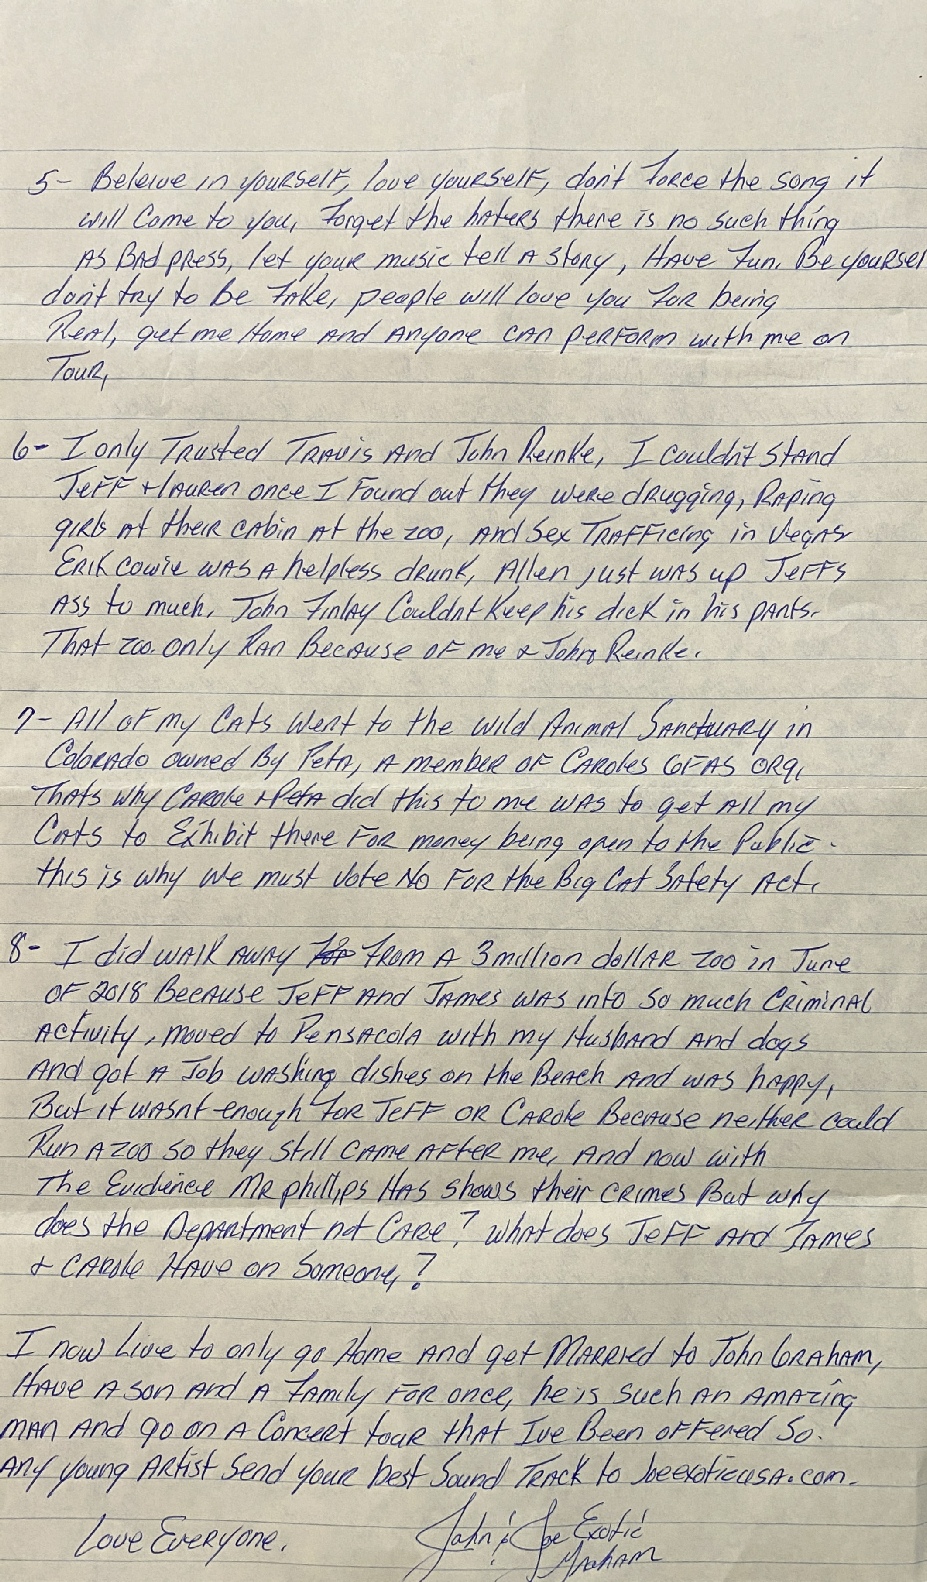 5- Beleive in yourself, love yourself, dont force the song it
will Come to you, Forget the haters there is no such thing
As Bad press, let your music tell A story, Have Fun. Be yoursel
dont try to Be Fake, people will love you For being
Real, get me Home And Anyone CAN perform with me on
Tour,
6- I only Trusted Travis And John Reinke, I couldn't stand
Jeff + lauren once I Found out they were drugging, Raping
girls At their cabin At the zoo, And Sex Trafficing in Vegas
Erik cowie was A helpless drunk, Allen just was up Jeffs
Ass to much, John Finlay Couldnt Keep his dick in his pants.
That zoo only Ran Because of me & John Reinke.
7- All of my Cats Went to the Wild Animal Sanctuary in
Colorado owned By Peta, A member of Caroles GFAS ORg,
Thats why Carole + Peta did this to me was to get All my
Cats to Exhibit there For money being open to the Public.
this is why we must Vote No For the Big Cat Safety Act.
8- I did walk away From A 3 million dollar zoo in June
OF 2018 Because Jeff And James was into so much Criminal
Activity, moved to Pensacola with my Husband And dogs
And got A Job washing dishes on the Beach And was happy,
But it wasnt enough For Jeff or Carole Because neither could
Run A zoo so they still came After me, And now with
The Evidence Mr phillips Has shows their crimes But why
does the Department not Care? What does Jeff And James
+ Carole Have on Someone,?
I now Live to only go Home And get Married to John Graham,
Have A son And A Family For once, he is such An Amazing
man And go on A Concert tour that Ive Been offered So.
Any young Artist Send your best Sound Track to Joeexoticusa.com.
Love Everyone.
John & Joe Exotic
Graham